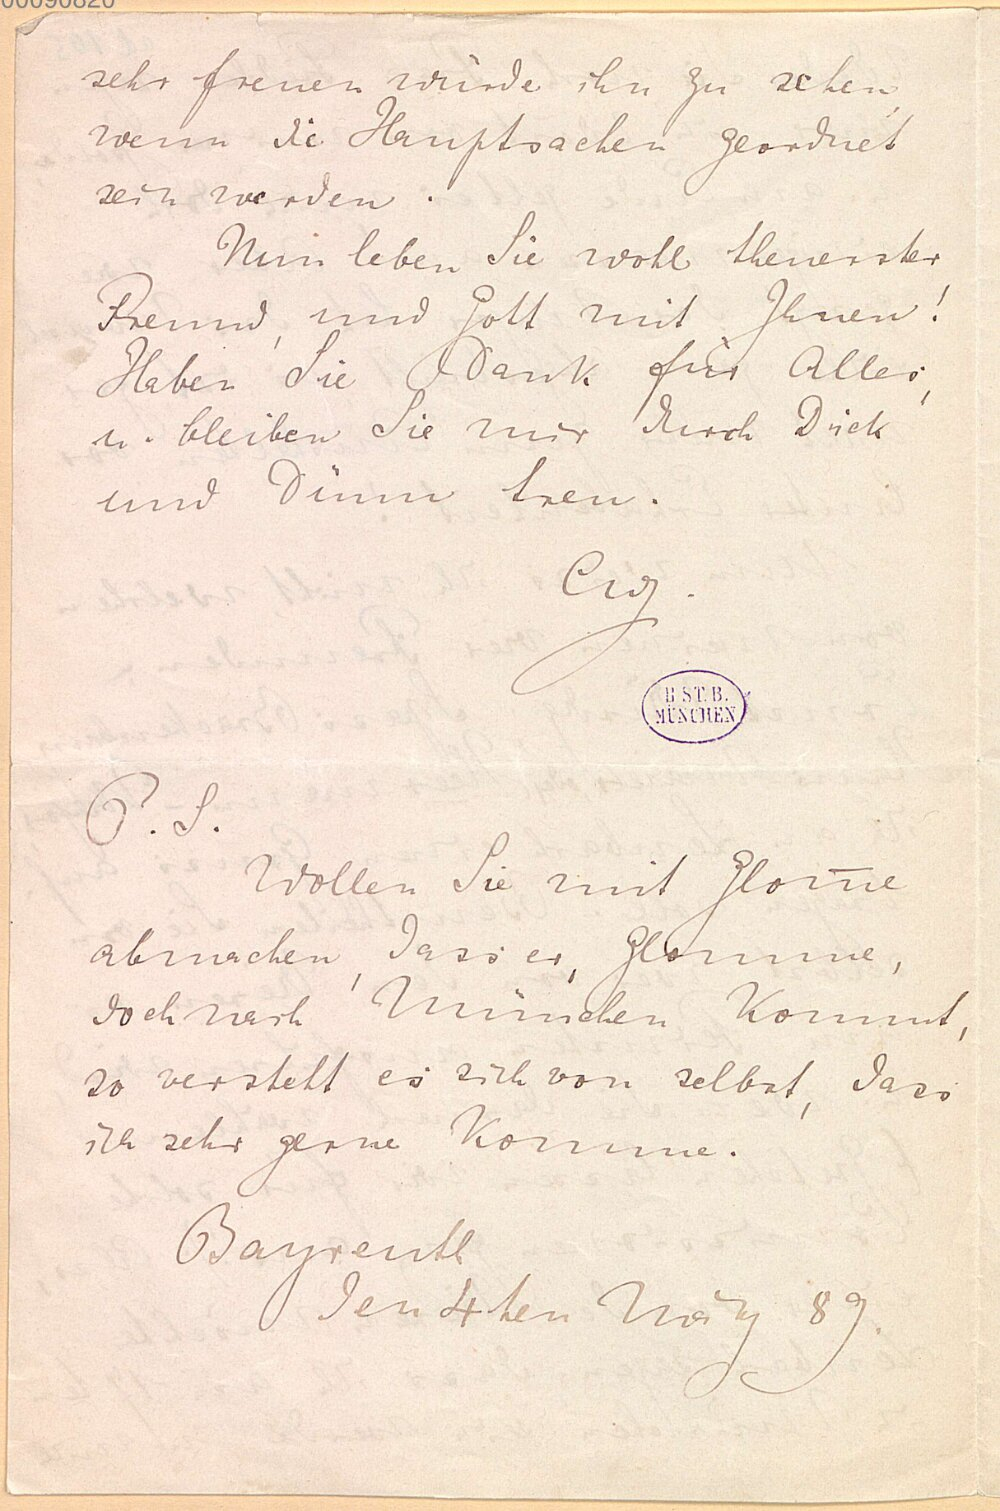 00090820
sehr freuen würde ihn zu sehen,
wenn die Hauptsachen geordnet
sein werden.
Nun leben Sie wohl theuerster
Freund, und Gott mit Ihnen!
Haben Sie Dank für Alles,
u. bleiben Sie mir durch Dick
und Dünn treu.
CWg.
B ST. B.
MÜNCHEN
P. S.
Wollen Sie mit Glom̅e
abmachen, dass er, Glomme,
doch nach München kommt,
so versteht es sich von selbst, dass
ich sehr gerne komme.
Bayreuth
den 4ten März 89.